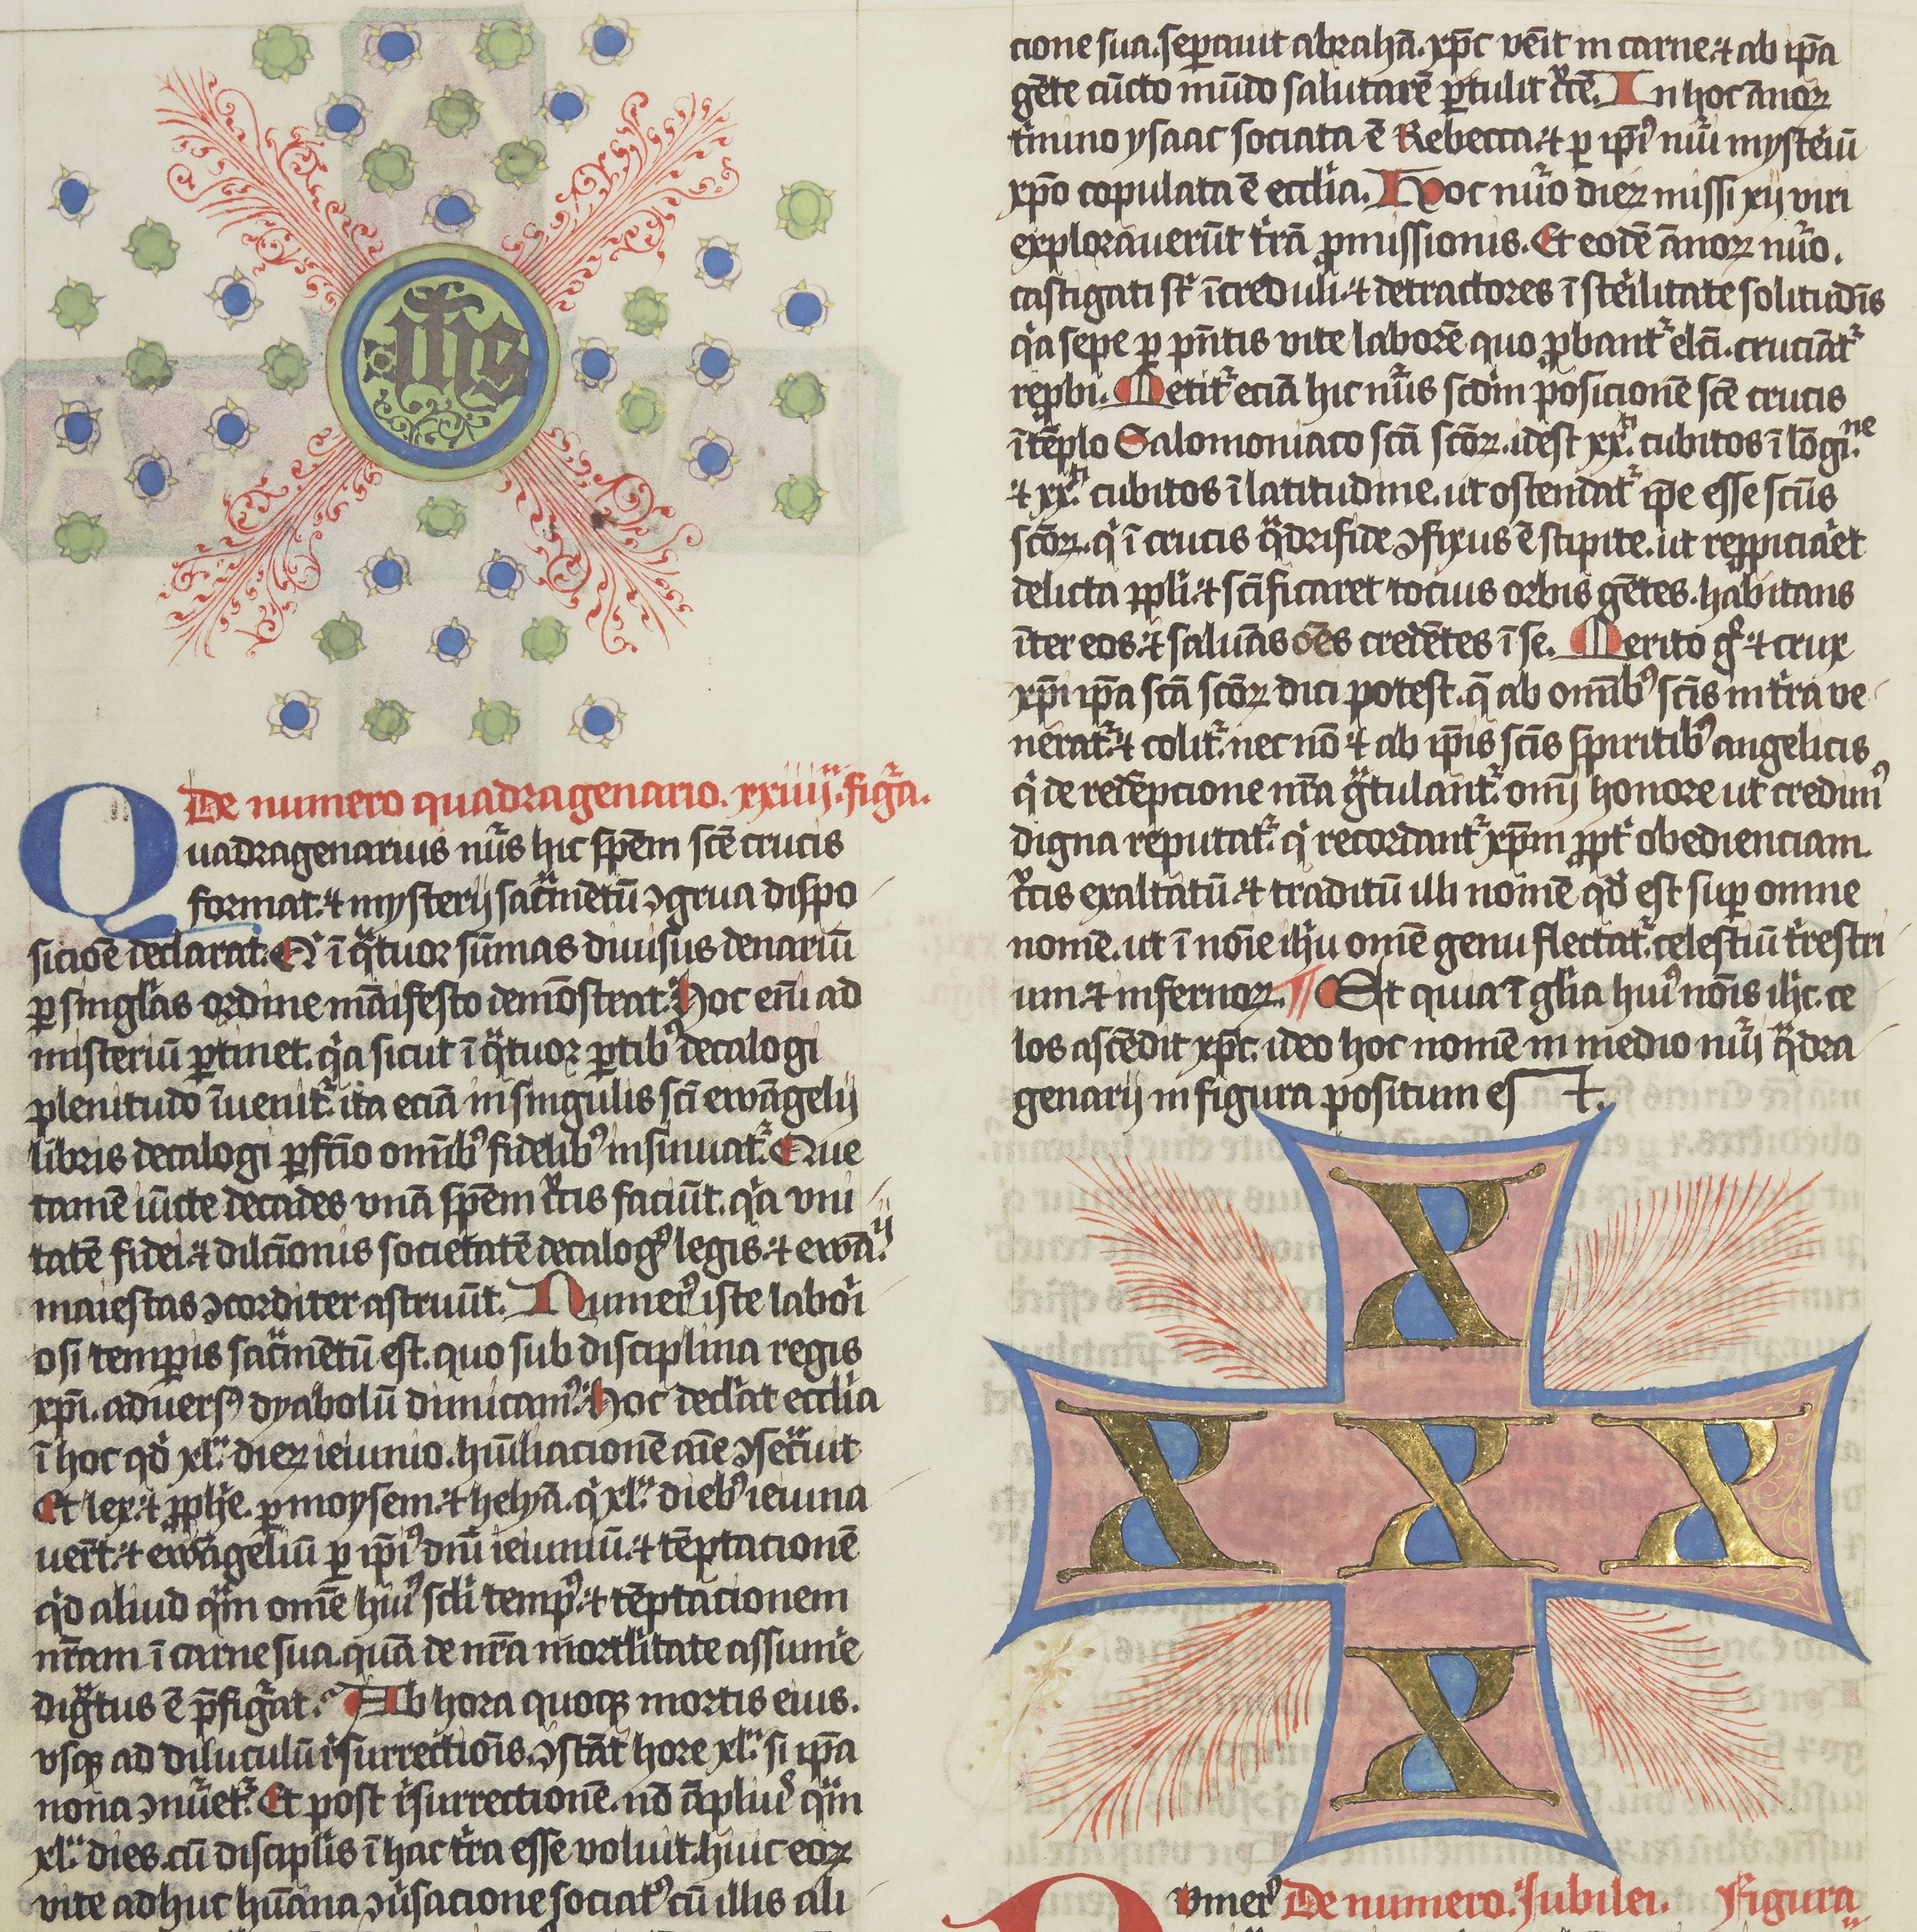 ihs
De numero quadragenario. xxiiij. figa.
Quadragenarius nūs hic spēm scē crucis
format. ⁊ mysterij sac̄mētū ꝯgrua dispo
sicioē declarat. Nā ī q̄tuor sūmas diuisus denariū
ꝑ singlas ordine māifesto demōstrat. Hoc em̄ ad
misteriū ꝑtinet. qꝛ sicut ī q̄tuor ꝑtibꝰ decalogi
plenitudo īuenit᷑. ita eciā in singulis scī ewāgelij
libris decalogi ꝑfctio omībꝰ fidelibꝰ insinuat᷑. Que
tamē iūcte decades vnā spēm crucis faciūt. qꝛ vni
tatē fidei. ⁊ dilcīonis societatē decalogꝰ legis. ⁊ ewāij
maiestas ꝯcorditer astruūt. Numerꝰ iste labori
osi temꝑis sac̄mētū est. quo sub disciplina regis
xp̄i. aduersꝰ dyabolū dimicamꝰ. Hoc declat ecclia
ī hoc qd̄ xl. dieꝝ ieiunio. hūiliacionē aīe ꝯsecūt
Et lex. ⁊ ꝓphe. ꝑ moysem. ⁊ helyā. qi xl. diebꝰ ieiuna
uer̄t. ⁊ ewāgeliū ꝑ ip̄iꝰ dnī ieiuniū. ⁊ tēptacionē
qd̄ aliud qm̄ omē huiꝰ scli tempꝰ. ⁊ tēptacionem
nr̄am ī carne sua. quā de nr̄a mortlitate assume
digtus ē p̄figat. Ab hora quoqꝫ mortis eius.
vsqꝫ ad diluculū rsurrectiois. ꝯstāt hore xl. si ip̄a
nona ꝯnuet᷑. Et post rsurrectionē. nō āpliꝰ qm̄
xl. dies. cū disciplis ī hac tra esse voluit. huic eoꝝ
vite adhuc hūana ꝯusacione sociatꝰ cū illis ali
cione sua. sepauit abrahā. xp̄c vēit in carne. ⁊ ab ip̄a
gēte cūcto mūdo salutarē ptulit crucē. In hoc ānoꝝ
tmino ysaac sociata ē Rebecca. ⁊ ꝑ ip̄iꝰ nūi mysteiū
xp̄o copulata ē ecclia. Hoc nūo dieꝝ missi xij viri
explorauerūt trā ꝓmissionis. Et eodē ānoꝝ nūo.
castigati st īcreduli. ⁊ detractores ī steilitate solitudīs
qꝛ sepe ꝑ pn̄tis vite laborē quo ꝓbant᷑ elcī. cruciāt᷑
repbi. Metit᷑ eciā hic nūs scdm posicionē scē crucis
ī tēplo Salomoniaco scā scōꝝ. idest xx.ti cubitos ī lōgi.ne
⁊ xx.ti cubitos ī latitudine. ut ostendat᷑ ip̄e esse scūs
scōꝝ. qi ī crucis q̄drifide ꝯfixus ē stipite. ut repꝓpiciaet
delicta ppli. ⁊ scīficaret tocius orbis gētes. habitans
īter eos. ⁊ saluās oēs credētes ī se. Merito g ⁊ crux
xp̄i ip̄a scā scōꝝ dici potest. q̄ ab omībꝰ scīs in tra ve
nerat᷑. ⁊ colit᷑. nec nō ⁊ ab ip̄is scīs spiritibꝰ angelicis
qi de redēpcione nr̄a gtulant᷑. omī honore ut credimꝰ
digna reputat᷑. qi recordant᷑ xp̄m ꝓpt obedienciam
crucis exaltatū. ⁊ traditū illi nomē qd̄ est suꝑ omne
nomē. ut ī noīe ihu omē genu flectat᷑. celestiū trestri
um. ⁊ infernoꝝ. ¶ Et quia ī glia huiꝰ nōis ihc. ce
los ascēdit xp̄c. ideo hoc nomē in medio nūi q̄dra
genarij in figura positum est.
X
X X X
X
De numero. Jubilei. Figura
umerꝰ